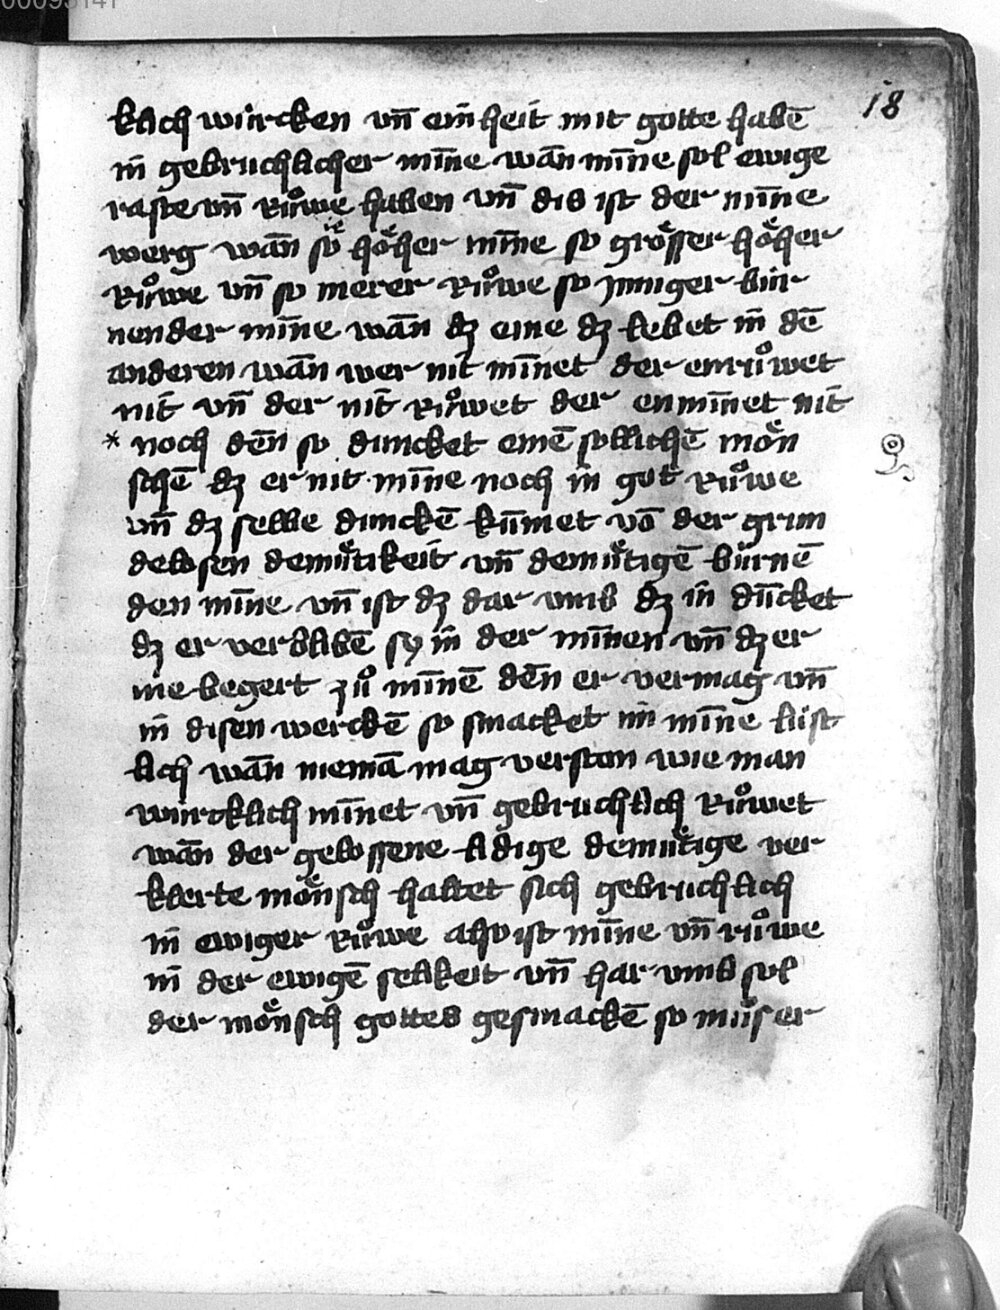 00095141
18
klich würcken vn̄ einheit mit gotte habē
in̄ gebruchlicher min̄e wan̄ min̄e sol ewige
raste vn̄ růwe haben vn̄ dis ist der min̄e
werg wan̄ so ie hoͤher min̄e so groͤsser hoͤher
růwe vn̄ so merer růwe so jnniger bür
nender min̄e wan̄ dz eine dz lebet in̄ dē
anderen wan̄ wer nit min̄et der enrůwet
nit vn̄ der nit růwet der enmin̄et nit
* noch den̄ so duncket einē sollichē moͤn
schē dz er nit min̄e noch in̄ got růwe
vn̄ dz selbe dunckē kum̄et vō der grun
delosen demuͤtikeit vn̄ demuͤtigē bürnē
den min̄e vn̄ ist dz dar vmb dz in̄ dun̄cket
dz er verblibē sy in̄ der min̄en vn̄ dz er
me begert zů min̄ē den̄ er vermag vn̄
in̄ disen werckē so smacket im̄ min̄e lust
lich wan̄ niemā mag verstan wie man
würcklich min̄et vn̄ gebruchlich růwet
wan̄ der gelossene lidige demuͤtige ver
klerte moͤnsch haltet sich gebruchlich
in̄ ewiger růwe also ist min̄e vn̄ růwe
in̄ der ewigē selikeit vn̄ har vmb sol
der moͤnsch gottes gesmackē so muͤs er